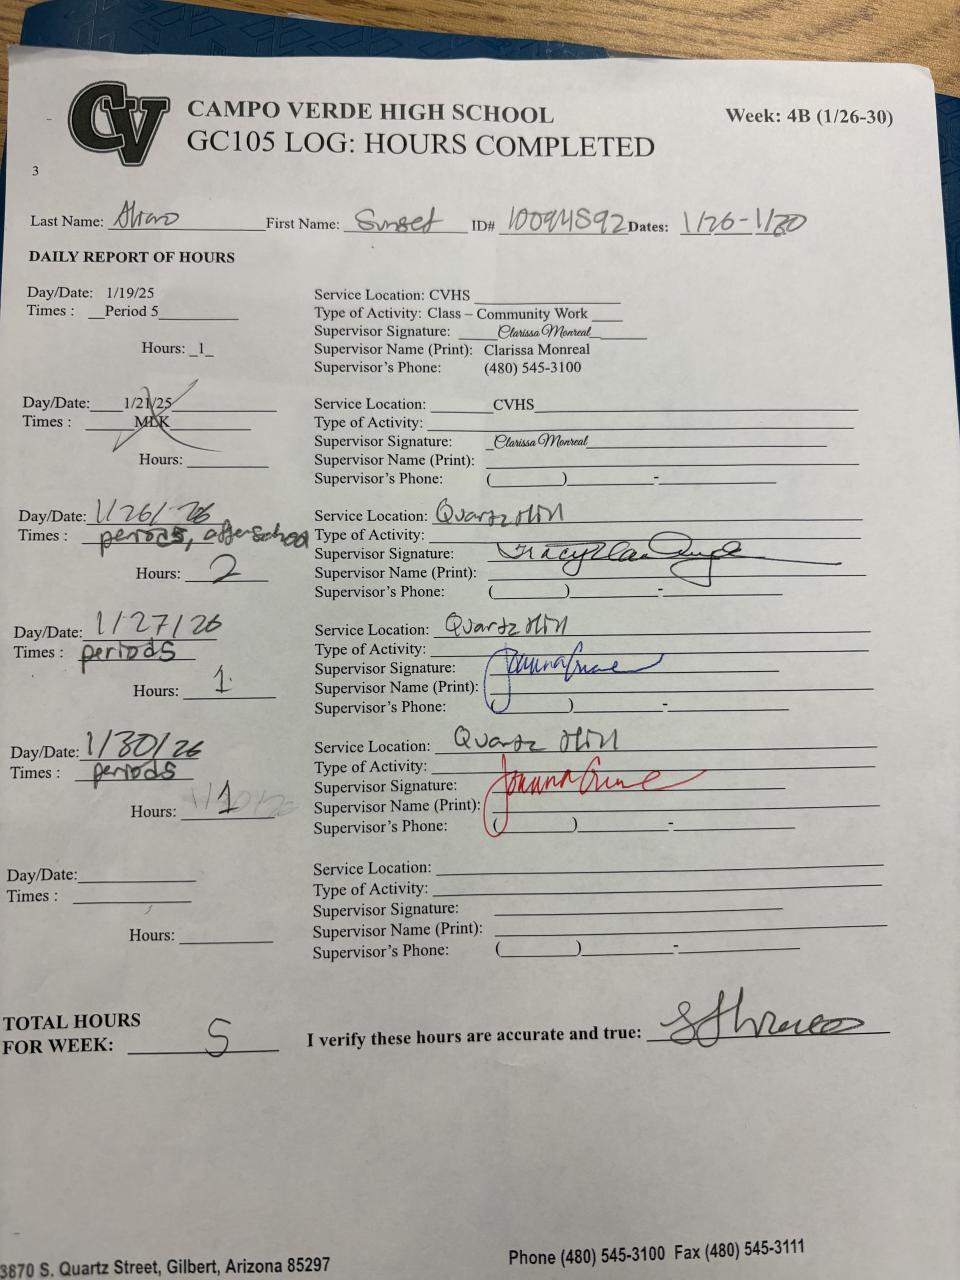 CV
CAMPO VERDE HIGH SCHOOL
Week: 4B (1/26-30)
GC105 LOG: HOURS COMPLETED
3
Last Name: First Name: Sunset ID# 10094892 Dates: 1/26-1/30
DAILY REPORT OF HOURS
Day/Date: 1/19/25
Times : Period 5
Hours: 1
Service Location: CVHS
Type of Activity: Class – Community Work
Supervisor Signature: Clarissa Monreal
Supervisor Name (Print): Clarissa Monreal
Supervisor's Phone: (480) 545-3100
Day/Date: 1/21/25
Times : MLK
Hours:
Service Location: CVHS
Type of Activity:
Supervisor Signature: Clarissa Monreal
Supervisor Name (Print):
Supervisor's Phone: ( ) -
Day/Date: 1/26/26
Times : period5, afterschool
Hours: 2
Service Location: Quartz Hill
Type of Activity:
Supervisor Signature:
Supervisor Name (Print):
Supervisor's Phone: ( ) -
Day/Date: 1/27/26
Times : period5
Hours: 1
Service Location: Quartz Hill
Type of Activity:
Supervisor Signature:
Supervisor Name (Print):
Supervisor's Phone: ( ) -
Day/Date: 1/30/26
Times : period5
Hours: 1
Service Location: Quartz Hill
Type of Activity:
Supervisor Signature:
Supervisor Name (Print):
Supervisor's Phone: ( ) -
Day/Date:
Times :
Hours:
Service Location:
Type of Activity:
Supervisor Signature:
Supervisor Name (Print):
Supervisor's Phone: ( ) -
TOTAL HOURS
FOR WEEK: 5
I verify these hours are accurate and true:
3870 S. Quartz Street, Gilbert, Arizona 85297
Phone (480) 545-3100 Fax (480) 545-3111